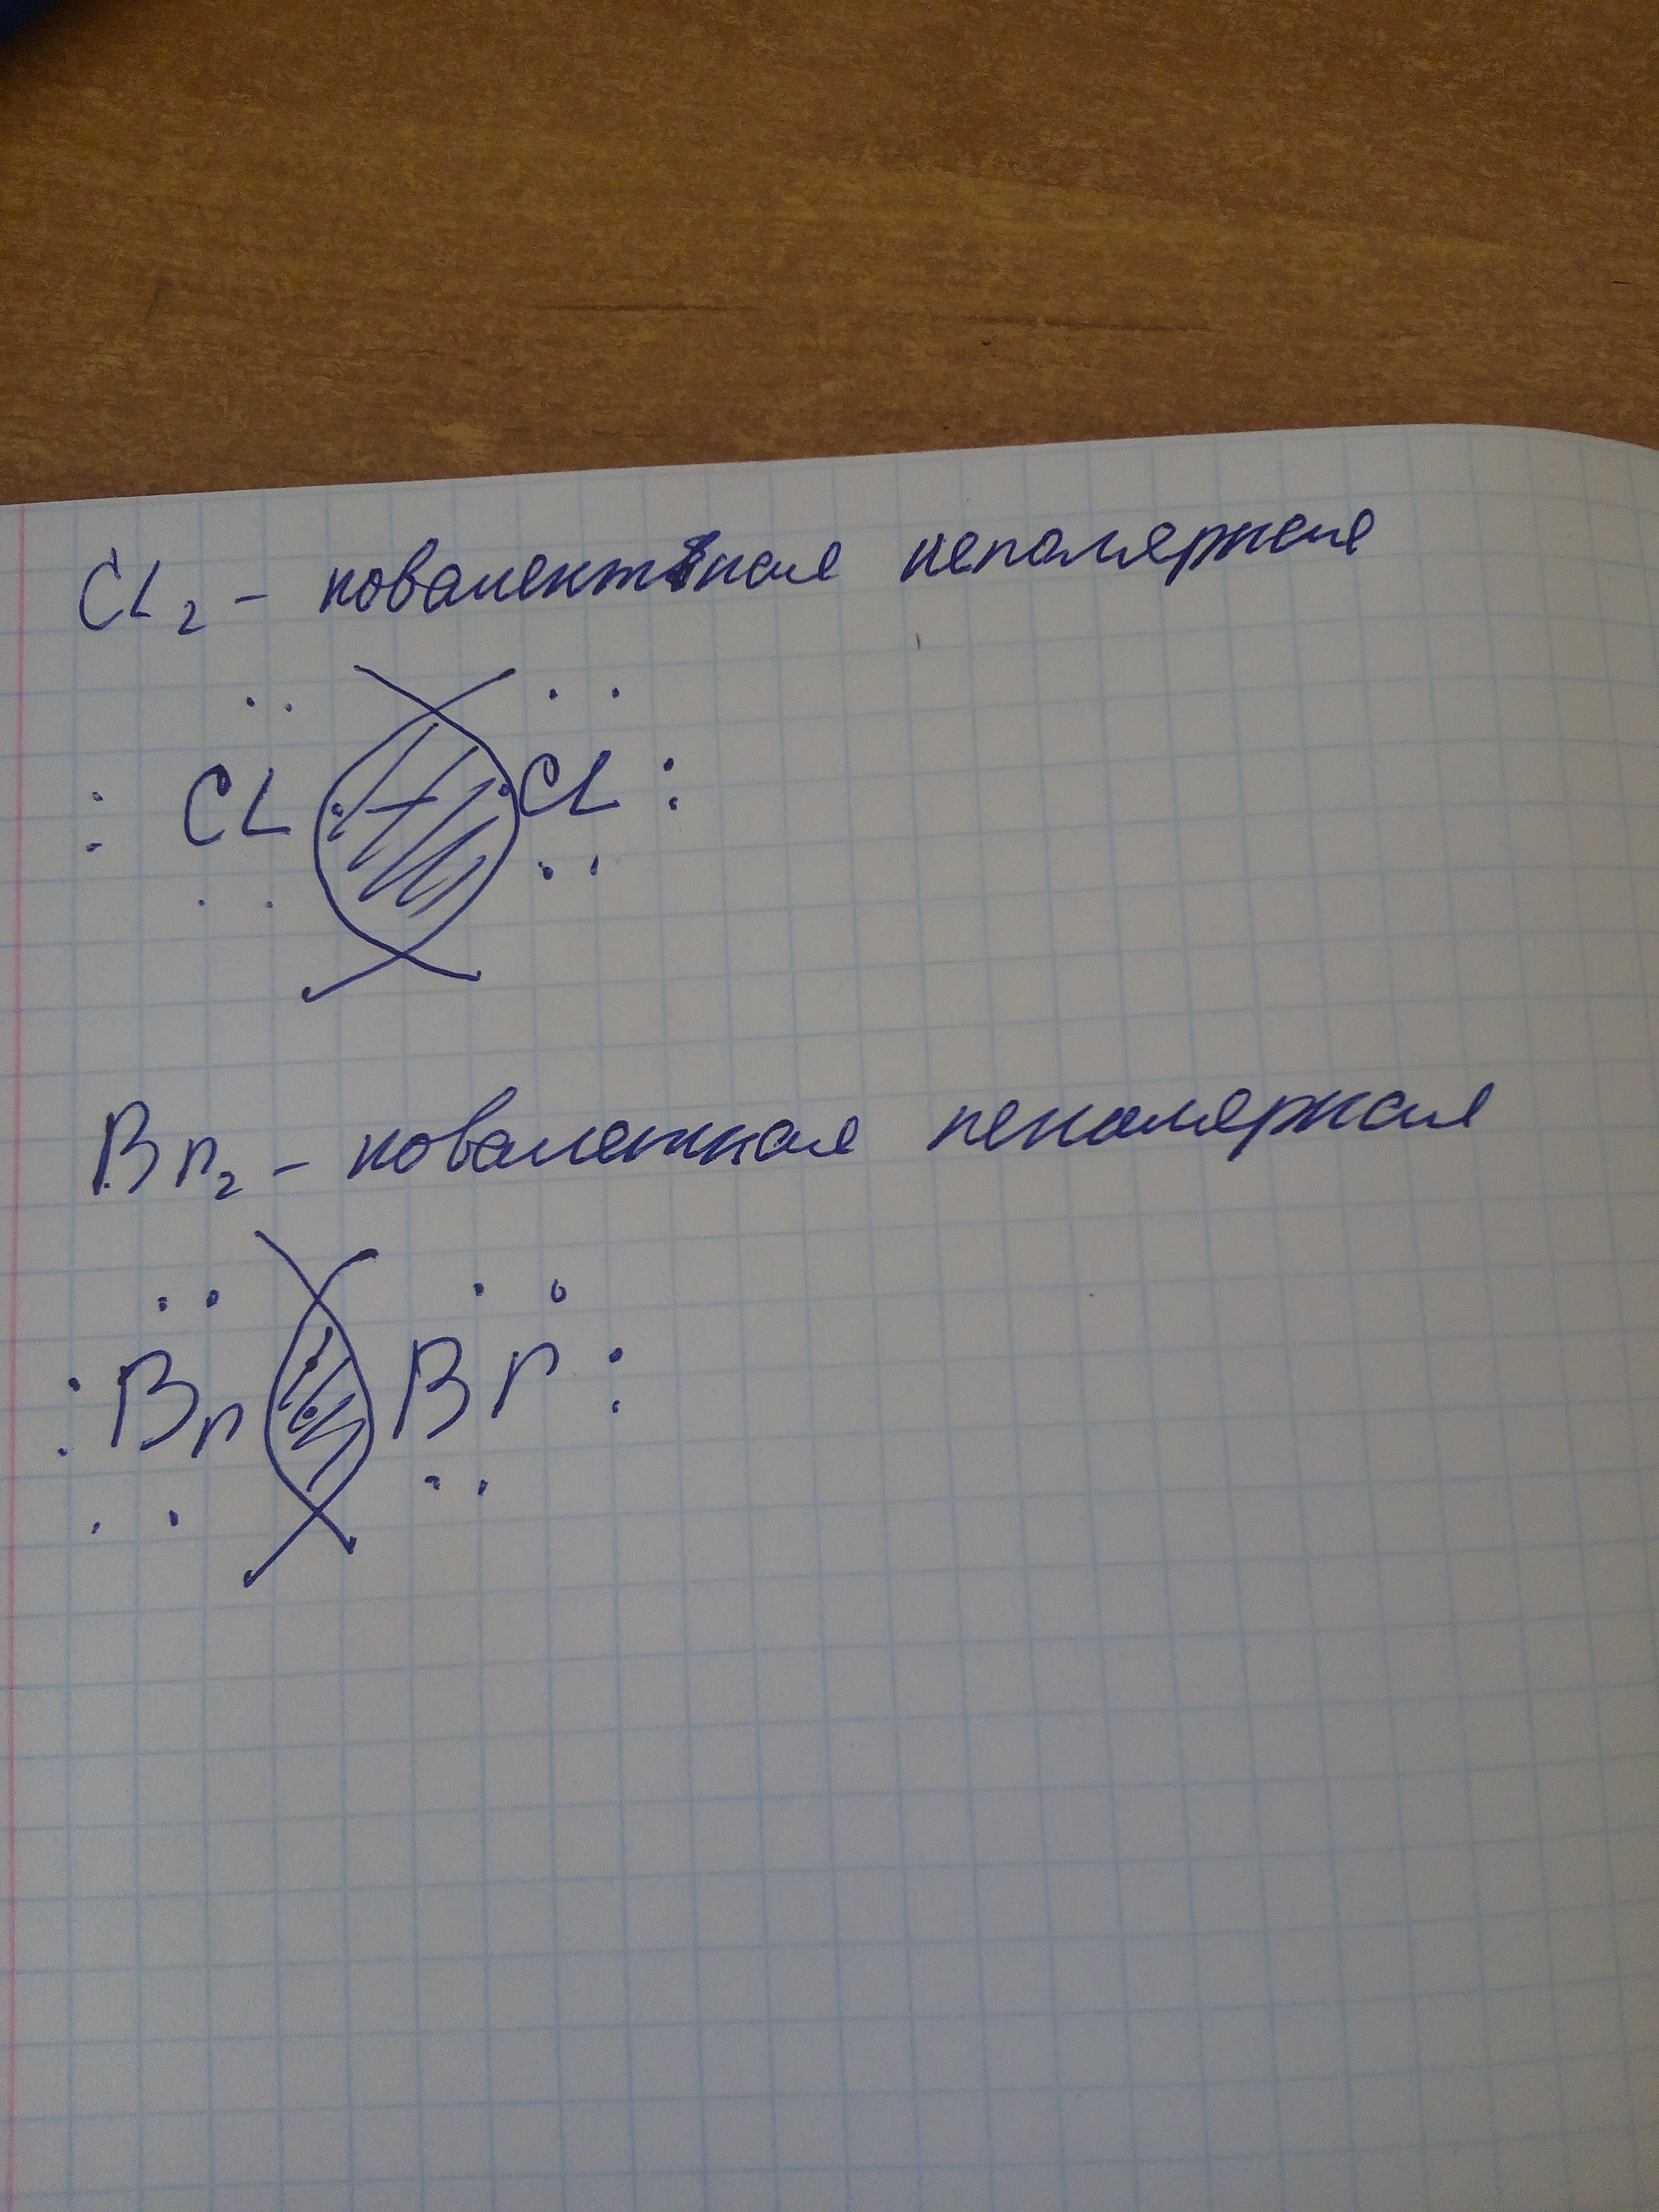 CL₂ - ковалентная неполярная
: CL · · CL :
Br₂ - ковалентная неполярная
: Br : Br :